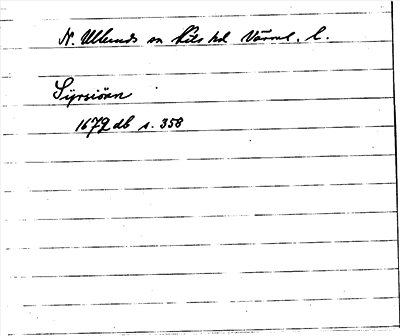 N. Ullerud sn Kils hd Värml. l.
Syrsiöen
1679 db s. 358